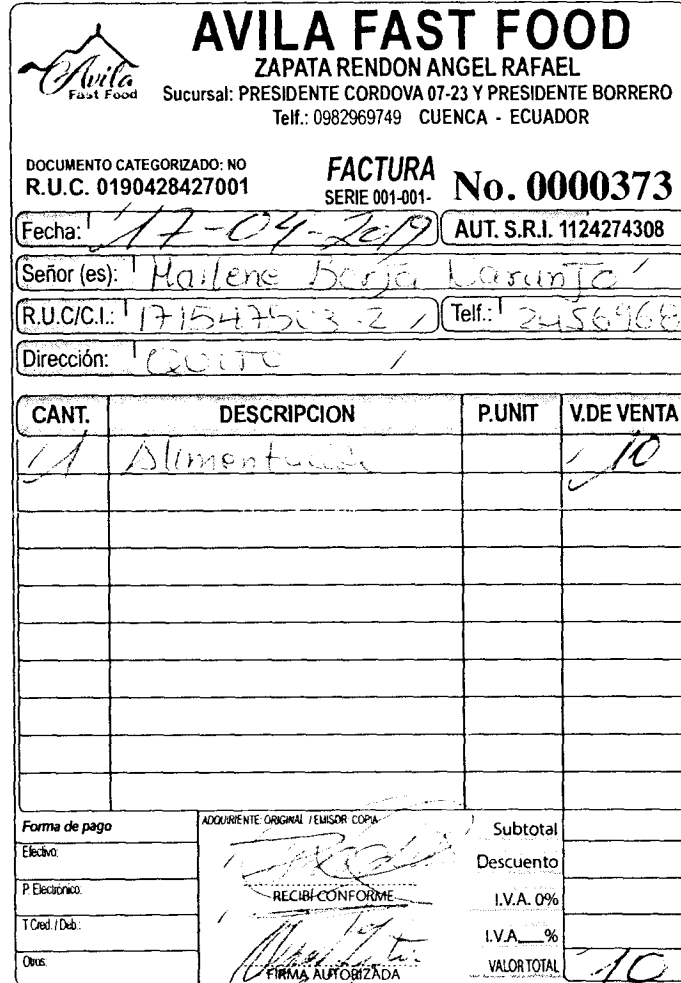 AVILA FAST FOOD
Avila
Fast Food
ZAPATA RENDON ANGEL RAFAEL
Sucursal: PRESIDENTE CORDOVA 07-23 Y PRESIDENTE BORRERO
Telf.: 0982969749 CUENCA - ECUADOR
DOCUMENTO CATEGORIZADO: NO
R.U.C. 0190428427001
FACTURA
SERIE 001-001- No. 0000373
Fecha: 17-04-2019 AUT. S.R.I. 1124274308
Señor (es): Marlene Borja Naranjo
R.U.C/C.I.: 171547503-2 Telf.: 2456968
Dirección: QUITO
CANT. DESCRIPCION P.UNIT V.DE VENTA
1 Alimentación 10
Forma de pago
Efectivo:
P. Electrónico:
T Cred. / Deb.:
Otros:
ADQUIRIENTE: ORIGINAL / EMISOR: COPIA
RECIBI CONFORME
FIRMA AUTORIZADA
Subtotal
Descuento
I.V.A. 0%
I.V.A.__%
VALOR TOTAL 10